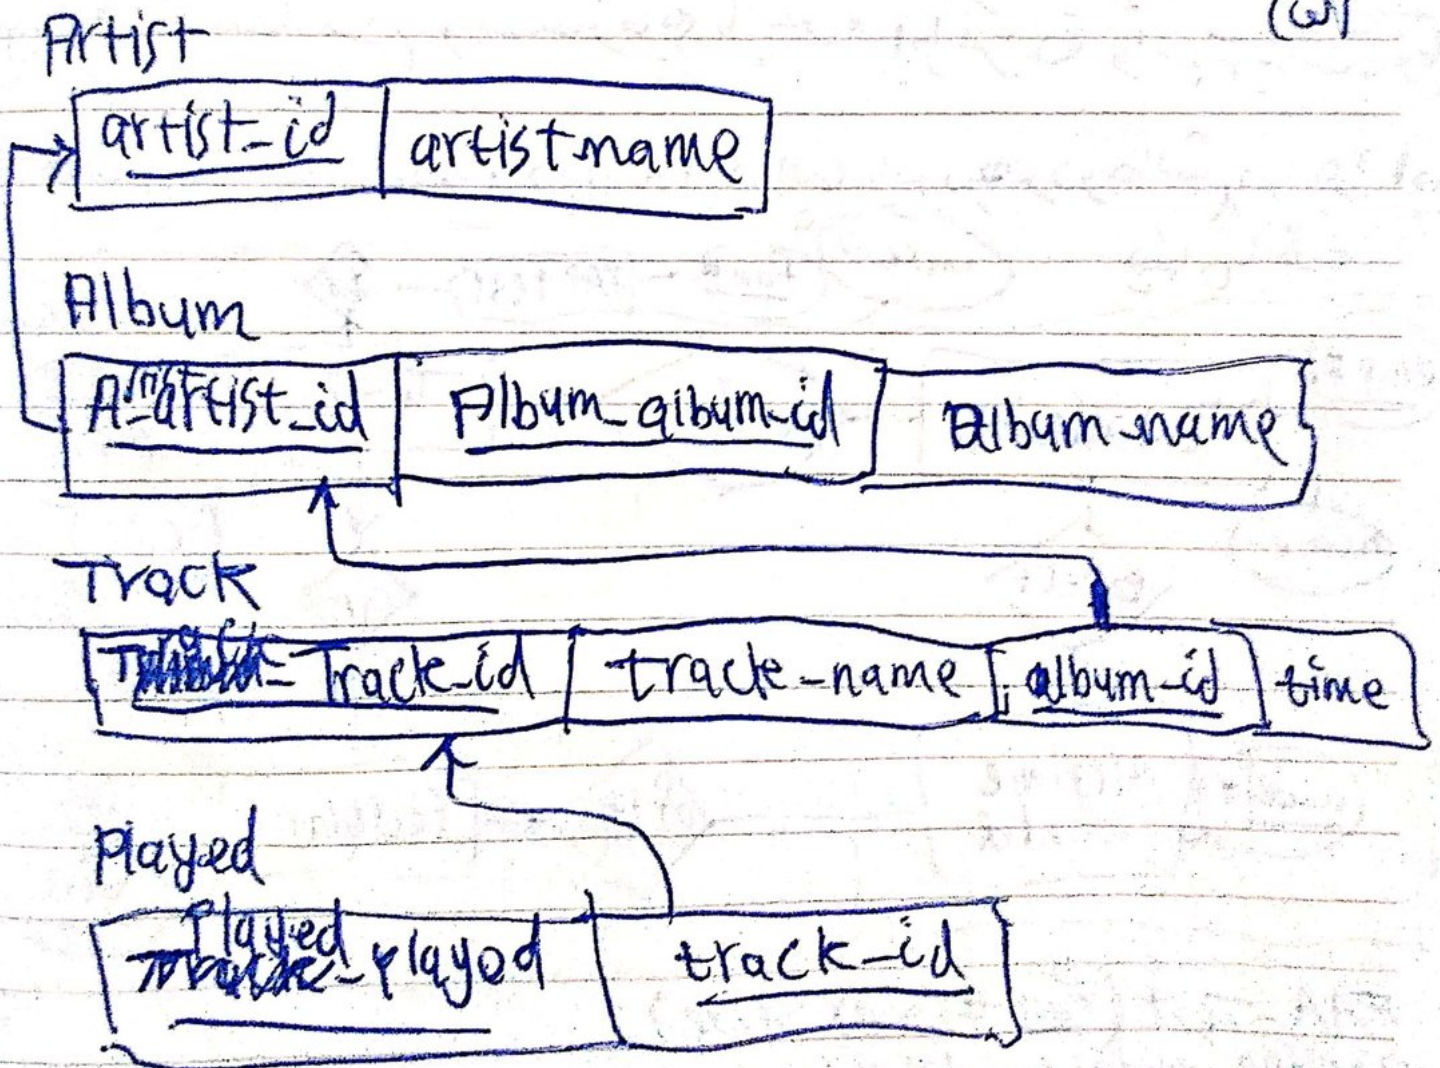 Artist
artist_id artistname
Album
artist_id Album_album_id album_name
Track
Track_id track_name album_id time
Played
Played_played track_id